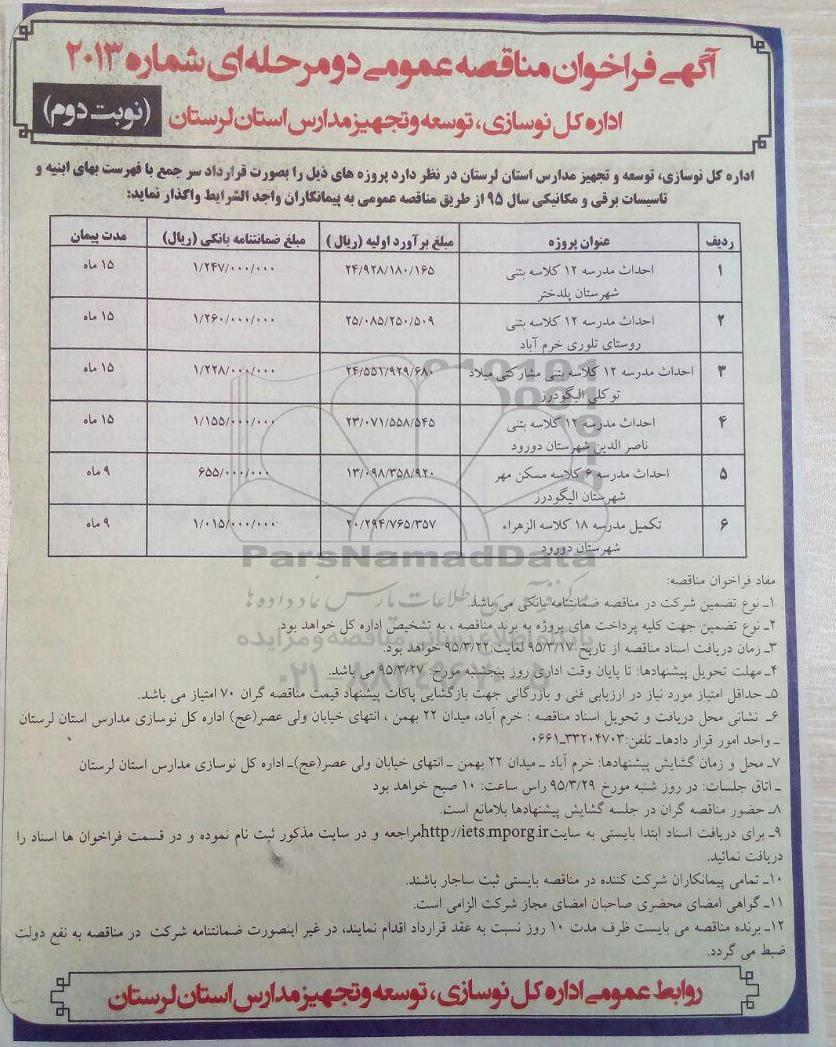 آگهی فراخوان مناقصه عمومی دو مرحله ای شماره ۲۰۱۳
اداره کل نوسازی، توسعه و تجهیز مدارس استان لرستان (نوبت دوم)
اداره کل نوسازی، توسعه و تجهیز مدارس استان لرستان در نظر دارد پروژه های ذیل را بصورت قرارداد سر جمع با فهرست بهای ابنیه و
تاسیسات برقی و مکانیکی سال ۹۵ از طریق مناقصه عمومی به پیمانکاران واجد الشرایط واگذار نماید:
ردیف عنوان پروژه مبلغ برآورد اولیه (ریال) مبلغ ضمانتنامه بانکی (ریال) مدت پیمان
۱ احداث مدرسه ۱۲ کلاسه بتنی ۲۴/۹۲۸/۱۸۰/۱۶۵ ۱/۲۴۷/۰۰۰/۰۰۰ ۱۵ ماه
شهرستان پلدختر
۲ احداث مدرسه ۱۲ کلاسه بتنی ۲۵/۰۸۵/۲۵۰/۵۰۹ ۱/۲۶۰/۰۰۰/۰۰۰ ۱۵ ماه
روستای تلوری خرم آباد
۳ احداث مدرسه ۱۲ کلاسه بتنی مشارکتی میلاد ۲۴/۵۵۱/۹۲۹/۶۸۰ ۱/۲۲۸/۰۰۰/۰۰۰ ۱۵ ماه
توکلی الیگودرز
۴ احداث مدرسه ۱۲ کلاسه بتنی ۲۳/۰۷۱/۵۵۸/۵۴۵ ۱/۱۵۵/۰۰۰/۰۰۰ ۱۵ ماه
ناصر الدین شهرستان دورود
۵ احداث مدرسه ۶ کلاسه مسکن مهر ۱۳/۰۹۸/۳۵۸/۹۲۰ ۶۵۵/۰۰۰/۰۰۰ ۹ ماه
شهرستان الیگودرز
۶ تکمیل مدرسه ۱۸ کلاسه الزهراء ۲۰/۲۹۴/۷۶۵/۳۵۷ ۱/۰۱۵/۰۰۰/۰۰۰ ۹ ماه
شهرستان دورود
ParsNamadData
مفاد فراخوان مناقصه:
۱ـ نوع تضمین شرکت در مناقصه ضمانتنامه بانکی می باشد.
۲ـ نوع تضمین جهت کلیه پرداخت های پروژه به برند مناقصه ، به تشخیص اداره کل خواهد بود.
۳ـ زمان دریافت اسناد مناقصه از تاریخ ۹۵/۳/۱۷ لغایت ۹۵/۳/۲۲ خواهد بود.
۴ـ مهلت تحویل پیشنهادها: تا پایان وقت اداری روز پنجشنبه مورخ: ۹۵/۳/۲۷ می باشد.
۵ـ حداقل امتیاز مورد نیاز در ارزیابی فنی و بازرگانی جهت بازگشایی پاکات پیشنهاد قیمت مناقصه گران ۷۰ امتیاز می باشد.
۶ـ نشانی محل دریافت و تحویل اسناد مناقصه : خرم آباد، میدان ۲۲ بهمن ، انتهای خیابان ولی عصر(عج) اداره کل نوسازی مدارس استان لرستان
ـ واحد امور قرار دادهاـ تلفن: ۳۳۲۰۴۷۰۳ـ۰۶۶۱
۷ـ محل و زمان گشایش پیشنهادها: خرم آباد ـ میدان ۲۲ بهمن ـ انتهای خیابان ولی عصر(عج)ـ اداره کل نوسازی مدارس استان لرستان
ـ اتاق جلسات: در روز شنبه مورخ ۹۵/۳/۲۹ راس ساعت: ۱۰ صبح خواهد بود
۸ـ حضور مناقصه گران در جلسه گشایش پیشنهادها بلامانع است.
۹ـ برای دریافت اسناد ابتدا بایستی به سایت http://iets.mporg.ir مراجعه و در سایت مذکور ثبت نام نموده و در قسمت فراخوان ها اسناد را
دریافت نمائید.
۱۰ـ تمامی پیمانکاران شرکت کننده در مناقصه بایستی ثبت ساجار باشند.
۱۱ـ گواهی امضای محضری صاحبان امضای مجاز شرکت الزامی است.
۱۲ـ برنده مناقصه می بایست ظرف مدت ۱۰ روز نسبت به عقد قرارداد اقدام نمایند، در غیر اینصورت ضمانتنامه شرکت در مناقصه به نفع دولت
ضبط می گردد.
روابط عمومی اداره کل نوسازی، توسعه و تجهیز مدارس استان لرستان